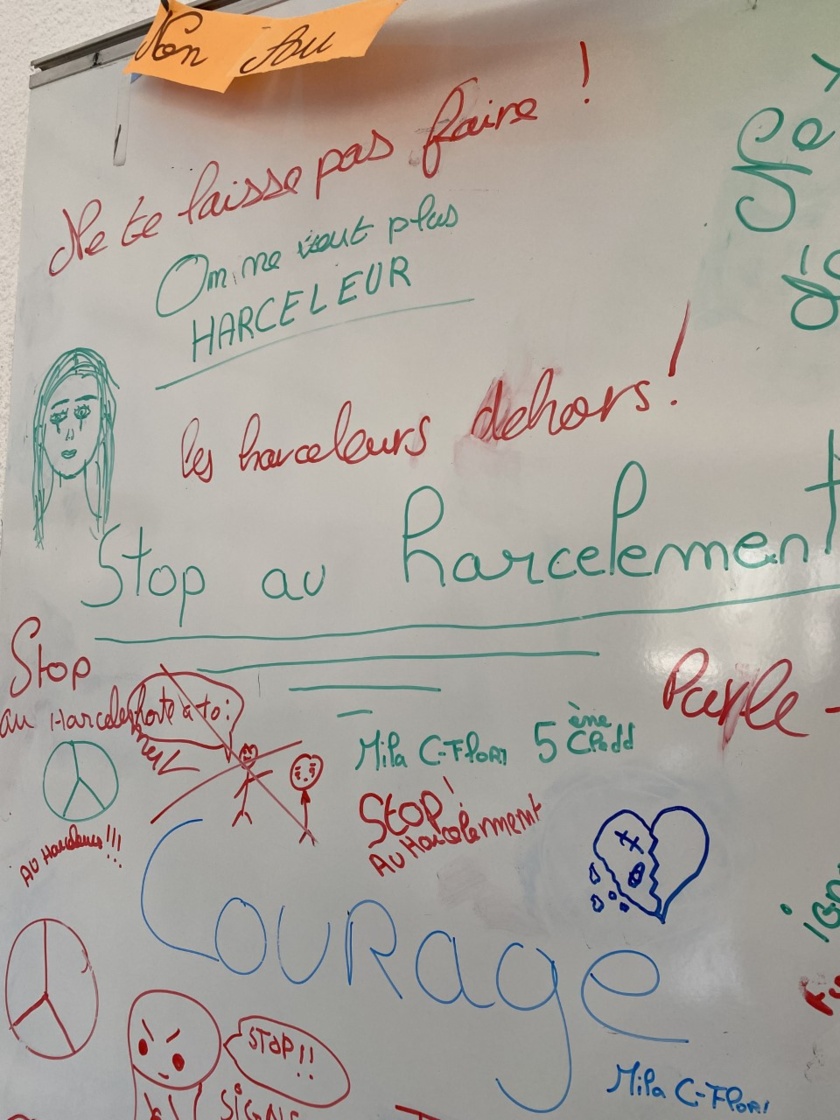 Non au
Ne te laisse pas faire !
On ne veut plus
HARCELEUR
les harceleurs dehors!
Stop au harcelement
Stop
au
honte à to:
Mila C-Flori 5ème
STOP!
AU Harcelerment
AU Harceleurs!!!
Parle-
Courage
STOP!!
SIGNE
Mila C-Flori